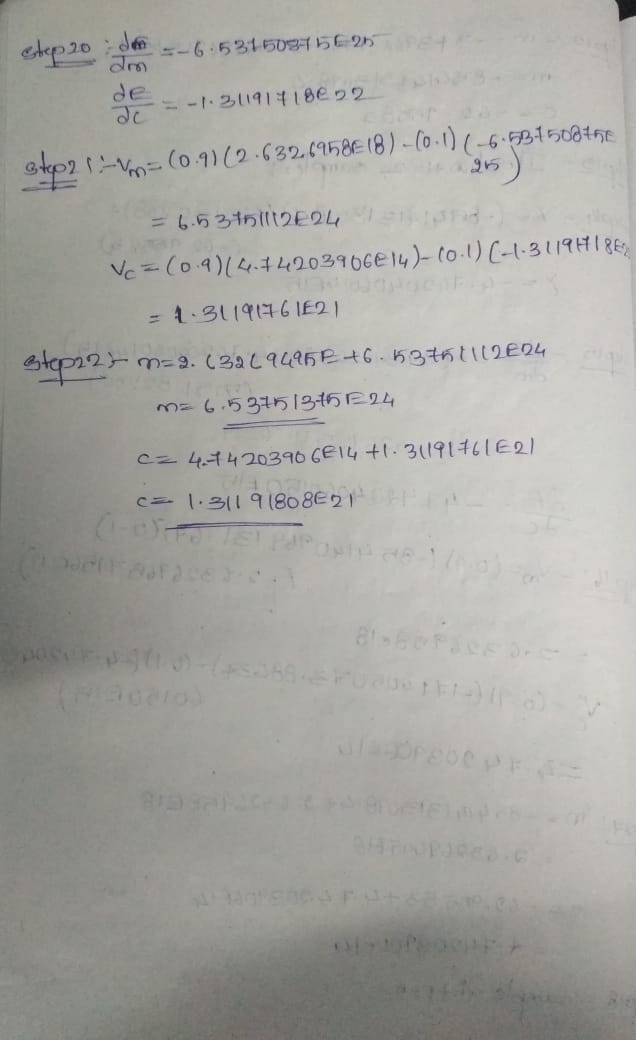 Step20 :- dm/dm = -6.53750875E25
de/dc = -1.31191718E22
Step21:- Vm = (0.9)(2.6326958E18) - (0.1)(-6.53750875E25)
= 6.53751112E24
Vc = (0.9)(4.74203906E14) - (0.1)(-1.31191718E22
= 1.31191761E21
Step22:- m = 2.63269495E + 6.53751112E24
m = 6.53751375E24
c = 4.74203906E14 + 1.31191761E21
c = 1.31191808E21